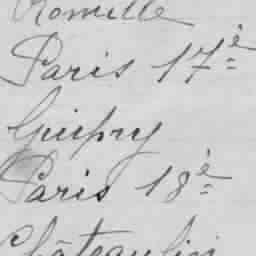 Romille
Paris 17è
Guipry
Paris 18è
Châteaulin